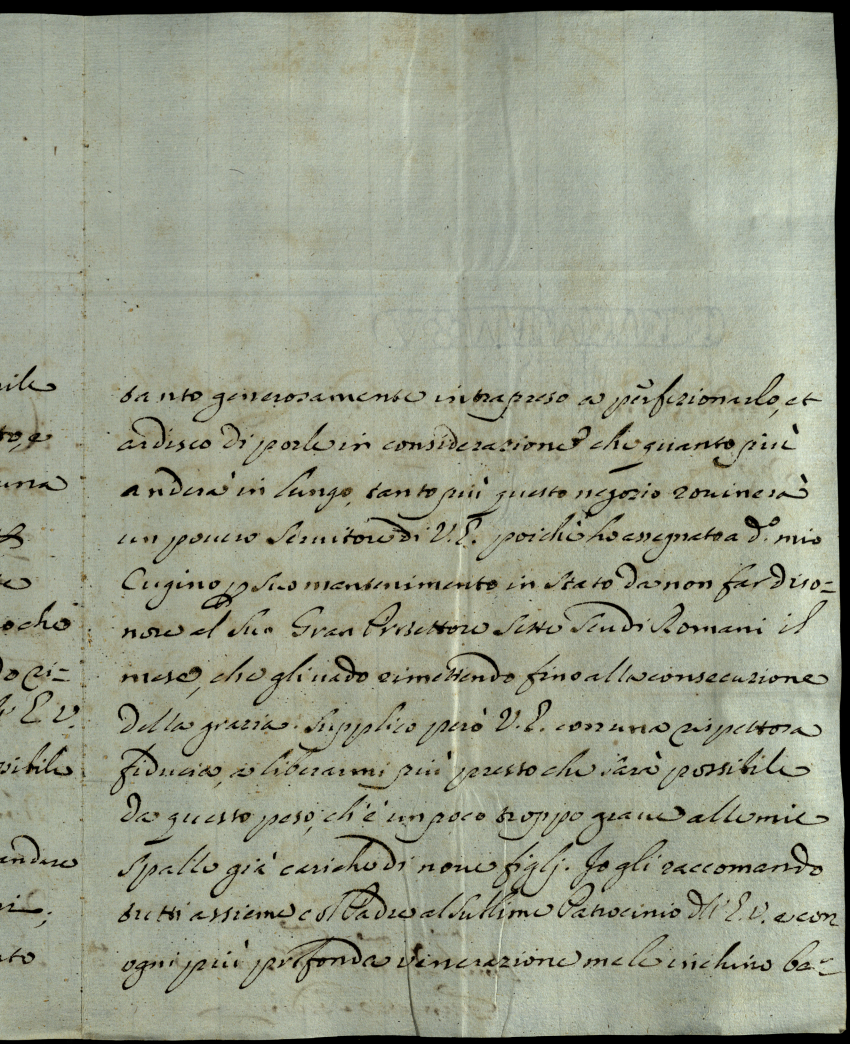 tanto generosamente intrapreso a perfezionarlo, et
ardisco di porle in considerazione che quanto più
anderà in lungo, tanto più questo negozio rovinerà
un povero Servitore di V.E. poichè ho assegnato a d.º mio
Cugino p suo mantenimento in Stato da non far diso=
nore al Suo Gran Protettore Sette Scudi Romani il
mese, che gli vado rimettendo fino alla consecuzione
della grazia. Supplico però V.E. con una rispettosa
fiducia, a liberarmi più presto che sarà possibile
da questo peso, ch'è un poco troppo grave alle mie
Spalle già cariche di nove figlj. Io gli raccomando
tutti assieme col Padre al Sublime Patrocinio dll' E.V. e con
ogni più profonda venerazione me le inchino ba=
ile
to, e
una
te
oche
do ri=
E V.
sibile
andare
ri;
to